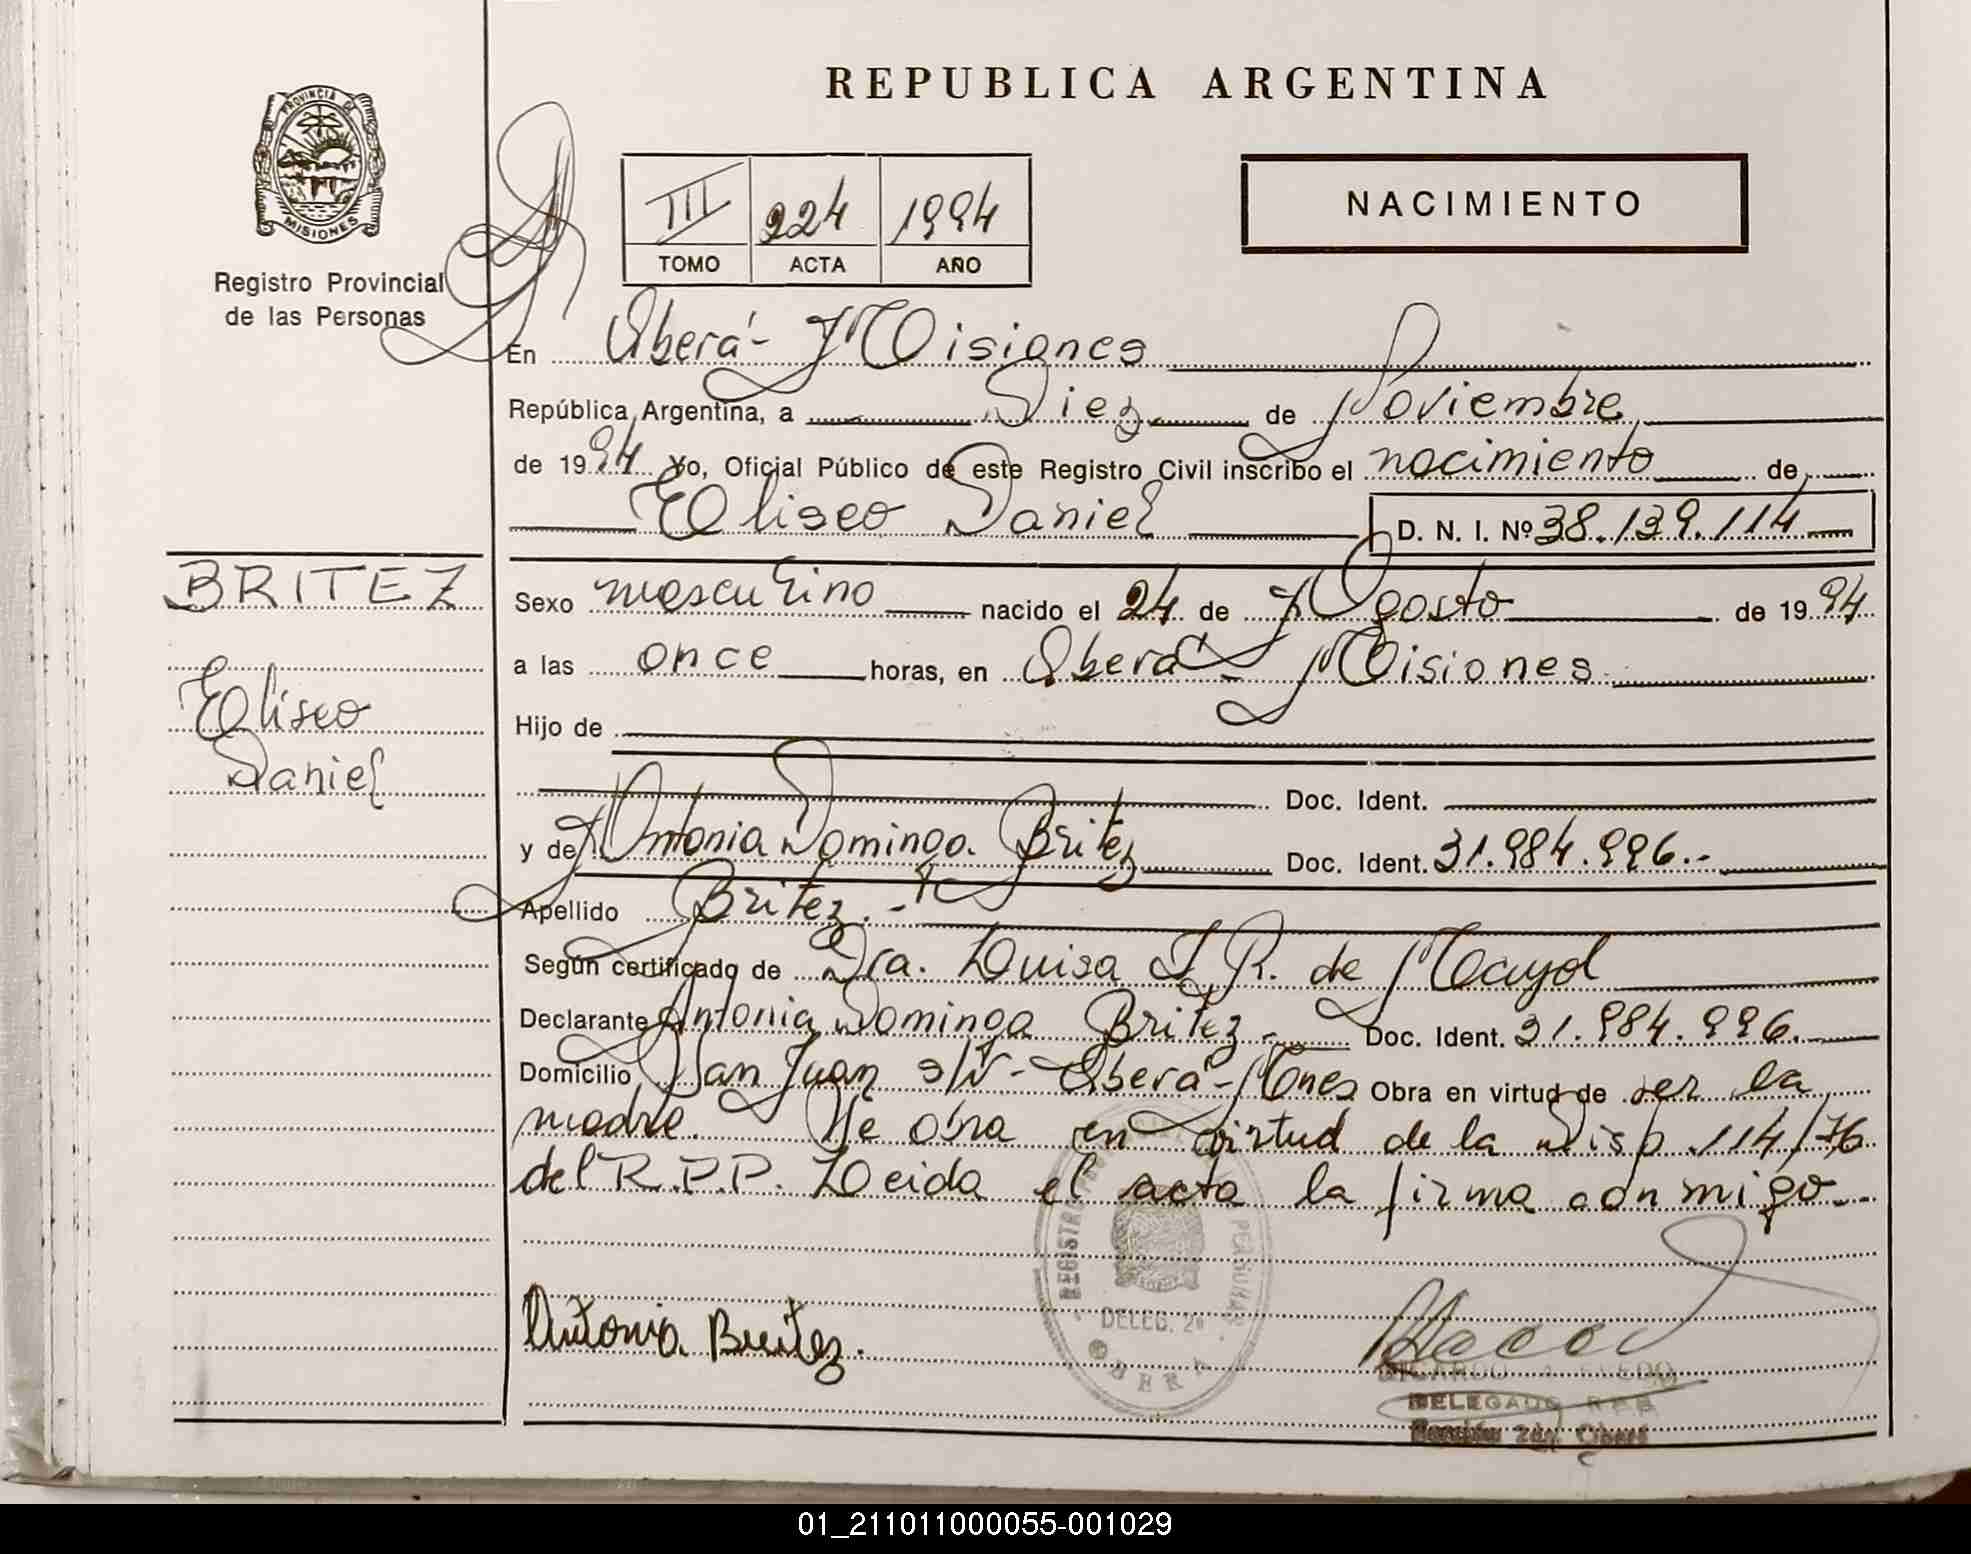 REPUBLICA ARGENTINA
PROVINCIA DE MISIONES
Registro Provincial
de las Personas
III 224 1994
TOMO ACTA AÑO
NACIMIENTO
En Oberá - Misiones
República Argentina, a Diez de Noviembre
de 1994 Yo, Oficial Público de este Registro Civil inscribo el nacimiento de
Eliseo Daniel D. N. I. Nº 38.139.114
BRITEZ
Eliseo
Daniel
Sexo masculino nacido el 24 de Agosto de 1994
a las once horas, en Oberá - Misiones
Hijo de
Doc. Ident.
y de Antonia Dominga Britez Doc. Ident. 31.984.996.-
Apellido Britez.-
Según certificado de Dra. Luisa I. R. de Mayol
Declarante Antonia Dominga Britez.- Doc. Ident. 31.984.996.
Domicilio San Juan s/N - Oberá - Mnes Obra en virtud de ser la
madre. Se obra en virtud de la Disp. 114/76
del R.P.P. Leida el acta la firma conmigo.-
Antonia Britez.
REGISTRO PERSONAS
DELEG. 2ª
OBERA
RICARDO
DELEGADO R.P.P.
Sección 2da. Oberá
01_211011000055-001029